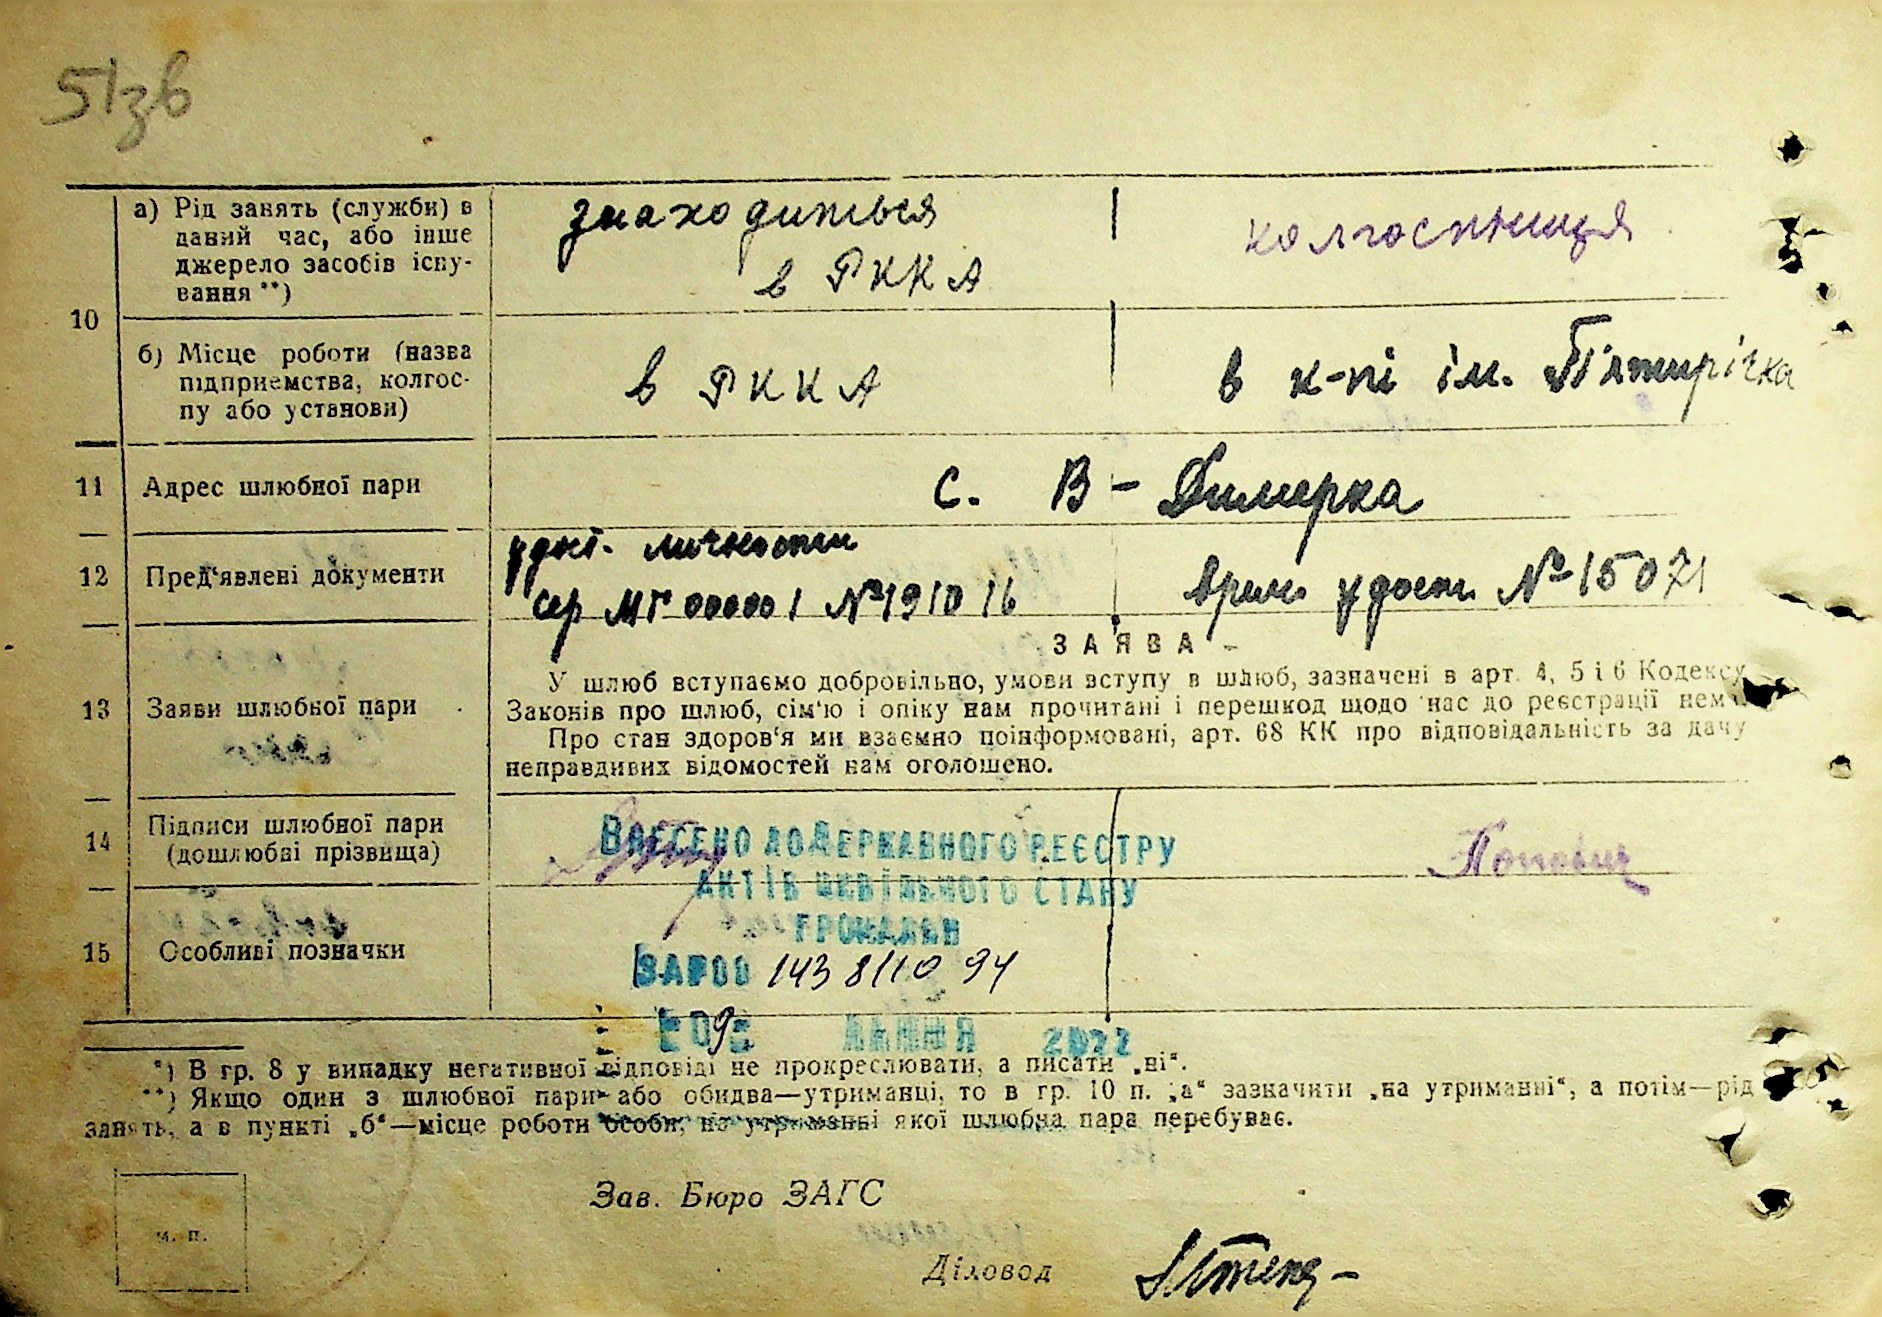 51зв
10
а) Рід занять (служби) в
даний час, або інше
джерело засобів існу-
вання **)
знаходиться
в РККА
колгоспниця
б) Місце роботи (назва
підприємства, колгос-
пу або установи)
в РККА
в к-пі ім. П'ятирічка
11 Адрес шлюбної пари
с. В-Димерка
12 Пред'явлені документи
личности
сер МГ 000001 №191016
врем. удост. №15071
13 Заяви шлюбної пари
ЗАЯВА -
У шлюб вступаємо добровільно, умови вступу в шлюб, зазначені в арт. 4, 5 і 6 Кодексу
Законів про шлюб, сім'ю і опіку нам прочитані і перешкод щодо нас до реєстрації нема
Про стан здоров'я ми взаємно поінформовані, арт. 68 КК про відповідальність за дачу
неправдивих відомостей нам оголошено.
14 Підписи шлюбної пари
(дошлюбні прізвища)
Попович
ВНЕСЕНО ДО ДЕРЖАВНОГО РЕЄСТРУ
АКТІВ ЦИВІЛЬНОГО СТАНУ
ГРОМАДЯН
15 Особливі позначки
ЗАР00 143 8110 94
2022
*) В гр. 8 у випадку негативної відповіді не прокреслювати, а писати „ні“.
**) Якщо один з шлюбної пари або обидва—утриманці, то в гр. 10 п. „а“ зазначити „на утриманні“, а потім—рід
занять, а в пункті „б“—місце роботи особи, на утриманні якої шлюбна пара перебуває.
м. п.
Зав. Бюро ЗАГС
Діловод